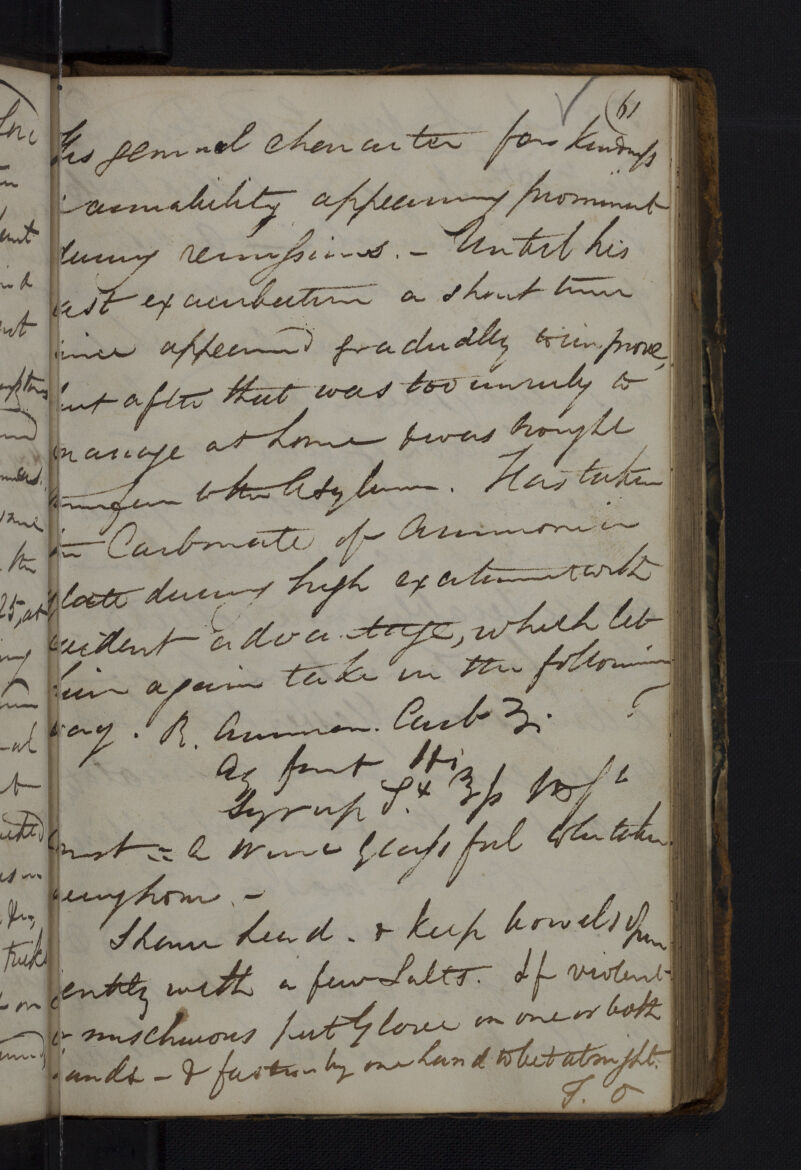 61
His general character for kindness
& amiability appearing prominent
during remissions. - Until his
last exacerbation a short time
since appeared gradually to improve,
but after that was too unruly to
manage at home & was brought
to the Asylum. Has taken
Carbonate of Ammonia
of late during high excitement with
evident advantage, which let
him again take in the following
way. R. Ammon. Carb ʒi.
Aq font
Syrup
Must = a wine glass ful to be taken
every hour. -
Shave head. & keep bowels open
gently with a few Salts. If violent
or mischievous put Glove on one or both
hands - & fasten by one hand to bed at night.
T. O